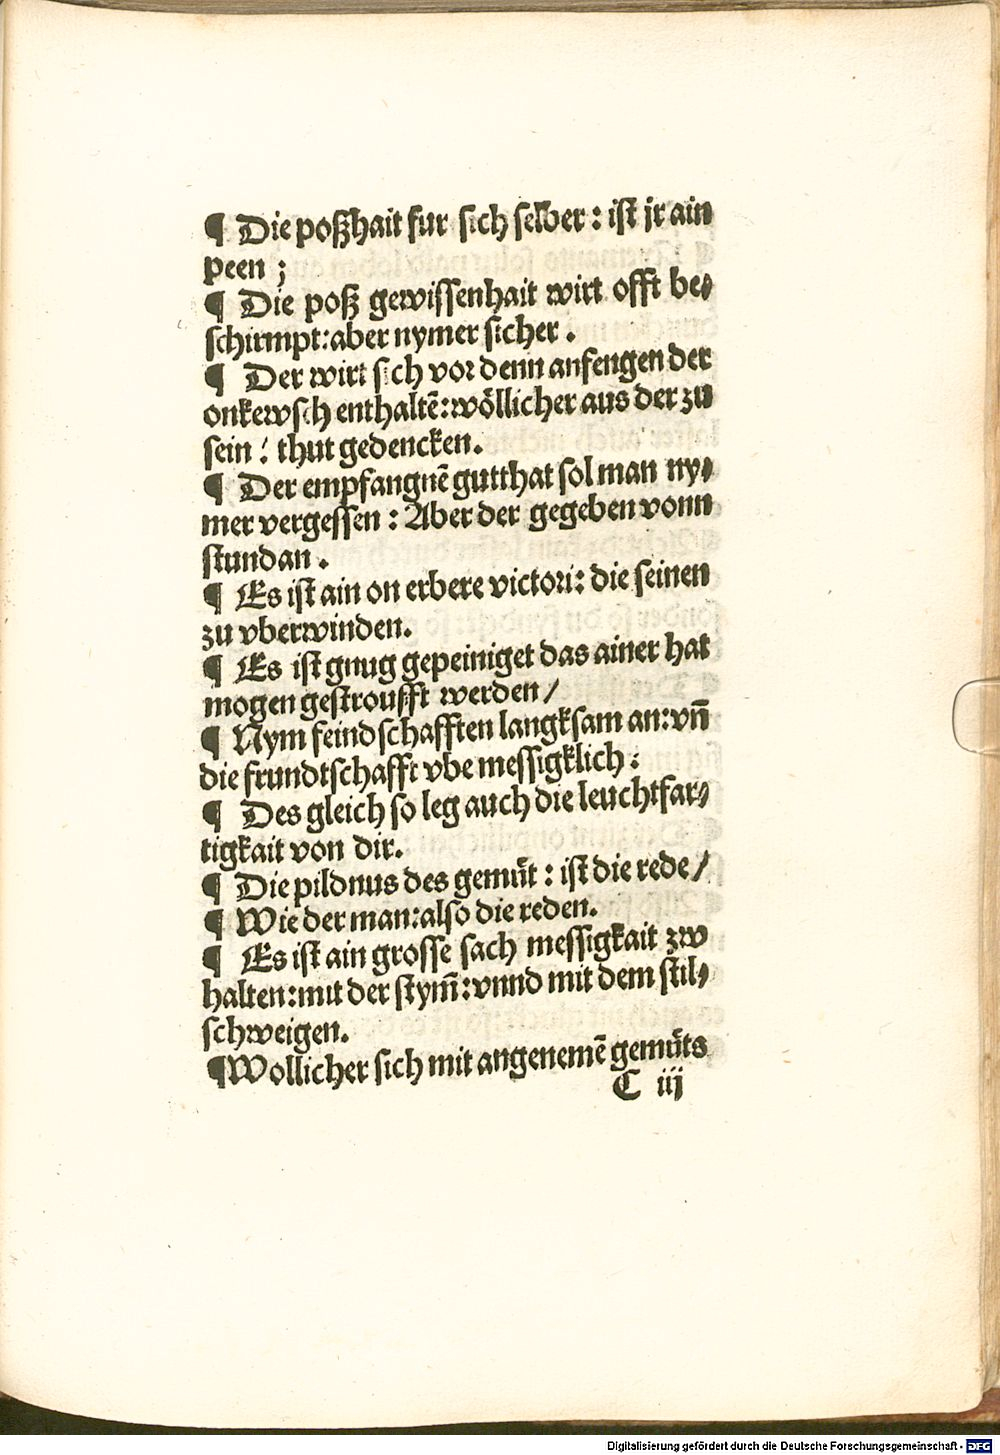 ¶ Die poßhait fur sich selber : ist jr ain
peen ;
¶ Die poß gewissenhait wirt offt be⸗
schirmpt: aber nymer sicher .
¶ Der wirt sich vor denn anfengen der
onkewsch enthaltē: wöllicher aus der zu
sein : thut gedencken.
¶ Der empfangnē gutthat sol man ny⸗
mer vergessen : Aber der gegeben vonn
stundan .
¶ Es ist ain on erbere victori: die seinen
zu vberwinden.
¶ Es ist gnug gepeiniget das ainer hat
mogen gestroufft werden /
¶ Nym feindschafften langksam an: vnn̄
die frundtschafft vbe messigklich :
¶ Des gleich so leg auch die leuchtfar⸗
tigkait von dir.
¶ Die pildnus des gemüt : ist die rede /
¶ Wie der man: also die reden.
¶ Es ist ain grosse sach messigkait zw
halten: mit der stym̄: vnnd mit dem stil⸗
schweigen.
¶ Wollicher sich mit angenemē gemüts
C iij
Digitalisierung gefördert durch die Deutsche Forschungsgemeinschaft - DFG